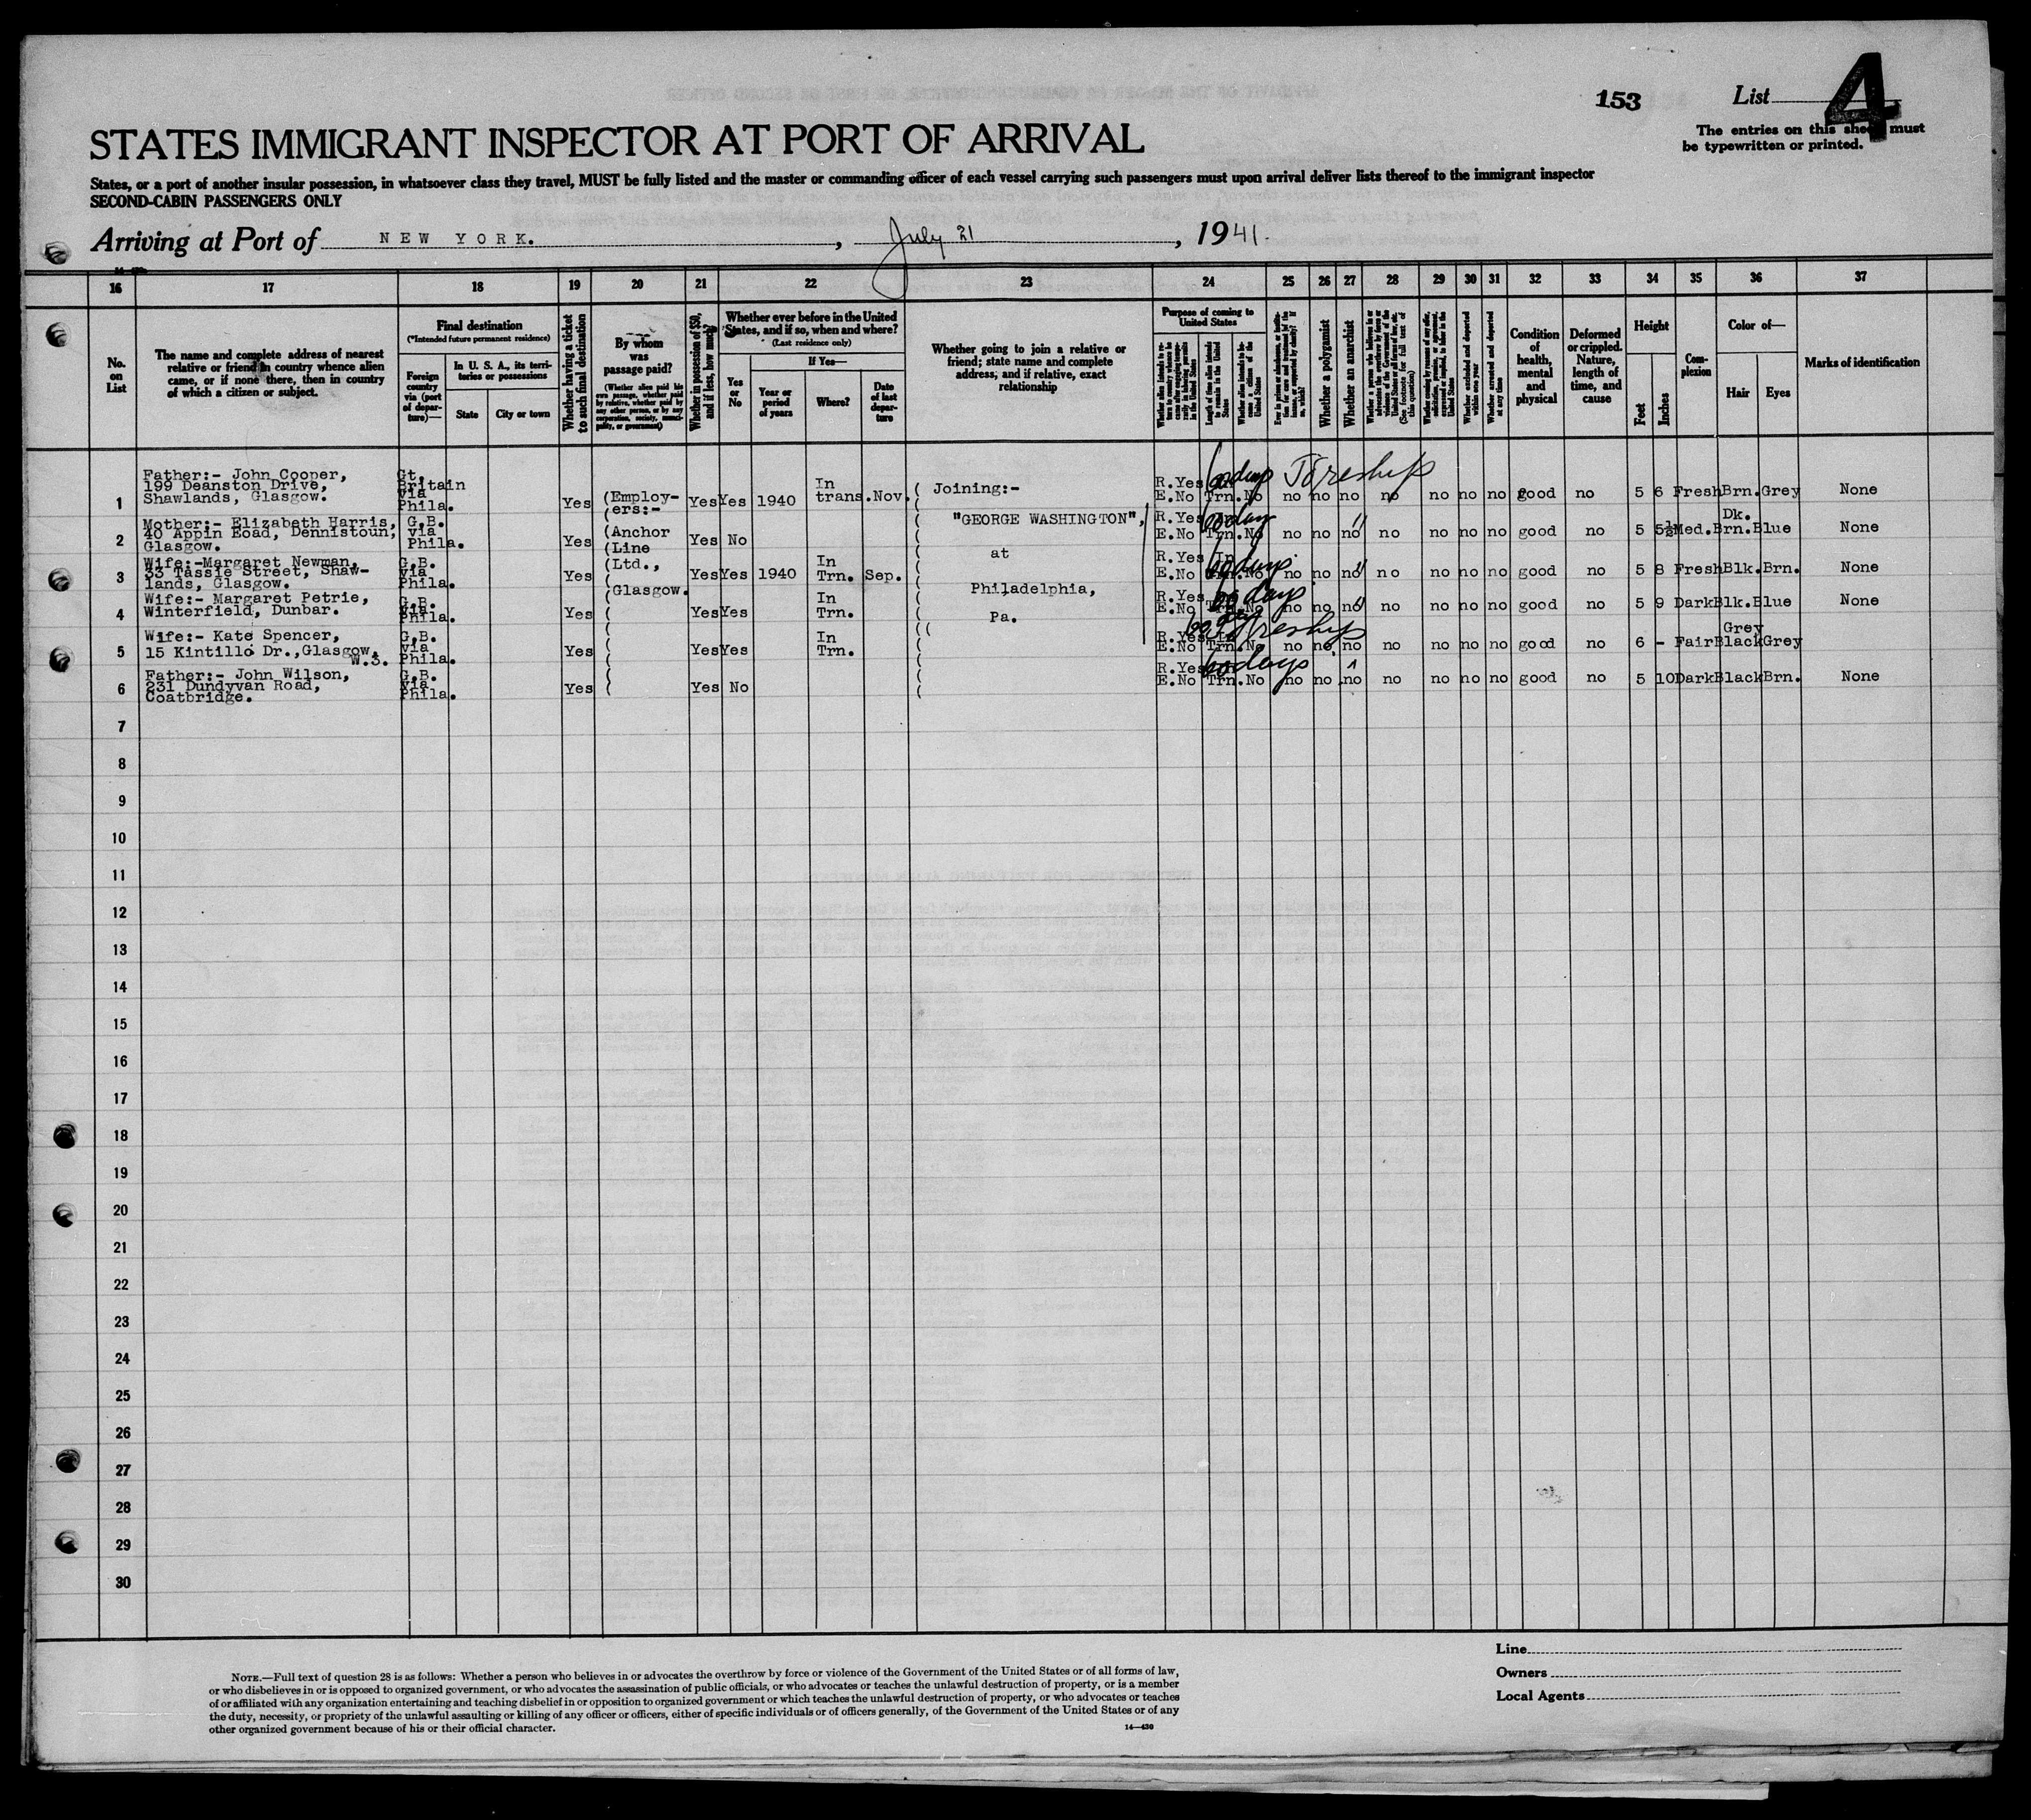 153
List
4
The entries on this sheet must
be typewritten or printed.
STATES IMMIGRANT INSPECTOR AT PORT OF ARRIVAL
States, or a port of another insular possession, in whatsoever class they travel, MUST be fully listed and the master or commanding officer of each vessel carrying such passengers must upon arrival deliver lists thereof to the immigrant inspector
SECOND-CABIN PASSENGERS ONLY
Arriving at Port of NEW YORK. , July 21 , 1941.
16 17 18 19 20 21 22 23 24 25 26 27 28 29 30 31 32 33 34 35 36 37
No.
on
List
The name and complete address of nearest
relative or friend in country whence alien
came, or if none there, then in country
of which a citizen or subject.
Final destination
(*Intended future permanent residence)
Foreign
country
via (port
of depar-
ture)—
In U. S. A., its terri-
tories or possessions
State
City or town
Whether having a ticket
to such final destination
By whom
was
passage paid?
(Whether alien paid his
own passage, whether paid
by relative, whether paid by
any other person, or by any
corporation, society, munici-
pality, or government)
Whether in possession of $50,
and if less, how much?
Whether ever before in the United
States, and if so, when and where?
(Last residence only)
Yes
or
No
If Yes—
Year or
period
of years
Where?
Date
of last
depar-
ture
Whether going to join a relative or
friend; state name and complete
address, and if relative, exact
relationship
Purpose of coming to
United States
Whether alien intends to re-
turn to country whence he
came after engaging tempo-
rarily in laboring pursuits
in the United States
Length of time alien intends
to remain in the United
States
Whether alien intends to be-
come a citizen of the
United States
Whether a polygamist
Whether an anarchist
Whether excluded and deported
within one year
Whether arrested and deported
at any time
Condition
of
health,
mental
and
physical
Deformed
or crippled.
Nature,
length of
time, and
cause
Height
Feet
Inches
Com-
plexion
Color of—
Hair
Eyes
Marks of identification
1
Father:- John Cooper,
199 Deanston Drive,
Shawlands, Glasgow.
Gt.
Britain
via
Phila.
Yes
(Employ-
(ers:-
Yes Yes 1940
In
trans. Nov.
( Joining:-
R.Yes
E.No Trn. No
60 days Toreship
no no no no no no no good no 5 6 Fresh Brn. Grey None
2
Mother:- Elizabeth Harris,
40 Appin Eoad, Dennistoun,
Glasgow.
G.B.
via
Phila.
Yes
(Anchor
(Line
Yes No
"GEORGE WASHINGTON",
R.Yes
E.No Trn. No
60 day "
no no no no no no no good no 5 5½ Med. Dk. Brn. Blue None
3
Wife:-Margaret Newman,
33 Tassie Street, Shaw-
lands, Glasgow.
G.B.
via
Phila.
Yes
(Ltd.,
(Glasgow.
Yes Yes 1940
In
Trn. Sep.
at
Philadelphia,
R.Yes In
E.No Trn. No
60 days "
no no no no no no no good no 5 8 Fresh Blk. Brn. None
4
Wife:- Margaret Petrie,
Winterfield, Dunbar.
G.B.
via
Phila.
Yes
Yes Yes
In
Trn.
Pa.
R.Yes
E.No Trn. No
60 days "
no no no no no no no good no 5 9 Dark Blk. Blue None
5
Wife:- Kate Spencer,
15 Kintillo Dr., Glasgow,
W.S.
G.B.
via
Phila.
Yes
Yes Yes
In
Trn.
R.Yes In
E.No Trn. No
60 day Toreship
no no no no no no no good no 6 - Fair Grey Black Grey
6
Father:- John Wilson,
231 Dundyvan Road,
Coatbridge.
G.B.
via
Phila.
Yes
Yes No
R.Yes
E.No Trn. No
60 days
no no no no no no no good no 5 10 Dark Black Brn. None
7
8
9
10
11
12
13
14
15
16
17
18
19
20
21
22
23
24
25
26
27
28
29
30
NOTE.—Full text of question 28 is as follows: Whether a person who believes in or advocates the overthrow by force or violence of the Government of the United States or of all forms of law,
or who disbelieves in or is opposed to organized government, or who advocates the assassination of public officials, or who advocates or teaches the unlawful destruction of property, or is a member
of or affiliated with any organization entertaining and teaching disbelief in or opposition to organized government or which teaches the unlawful destruction of property, or who advocates or teaches
the duty, necessity, or propriety of the unlawful assaulting or killing of any officer or officers, either of specific individuals or of officers generally, of the Government of the United States or of any
other organized government because of his or their official character.
14—430
Line
Owners
Local Agents